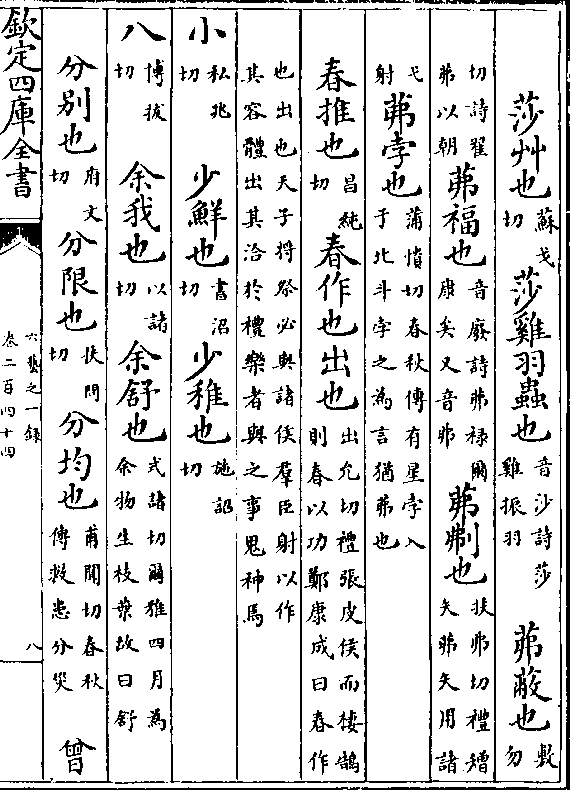 莎艸也蘇戈切莎雞羽蟲也音沙詩莎雞振羽茀蔽也敷勿
切詩翟茀以朝茀福也音廢詩茀禄爾康矣又音弗茀刜也扶弗切禮矰矢茀矢用諸
弋射茀孛也蒲憒切春秋傳有星孛入于北斗孛之為言猶茀也
春推也昌純切春作也出也出允切禮張皮侯而棲鵠則春以功鄭康成曰春作
也出也天子將祭必與諸侯羣臣射以作其容體出其洽於禮樂者與之事鬼神焉
小私兆切少鮮也書沼切少稚也施詔切
八博拔切余我也以諸切余舒也式諸切爾雅四月為余物生枝葉故曰舒
分別也府文切分限也扶問切分均也甫聞切春秋傳救患分災曾
欽定四庫全書
六藝之一録
卷二百四十四
八